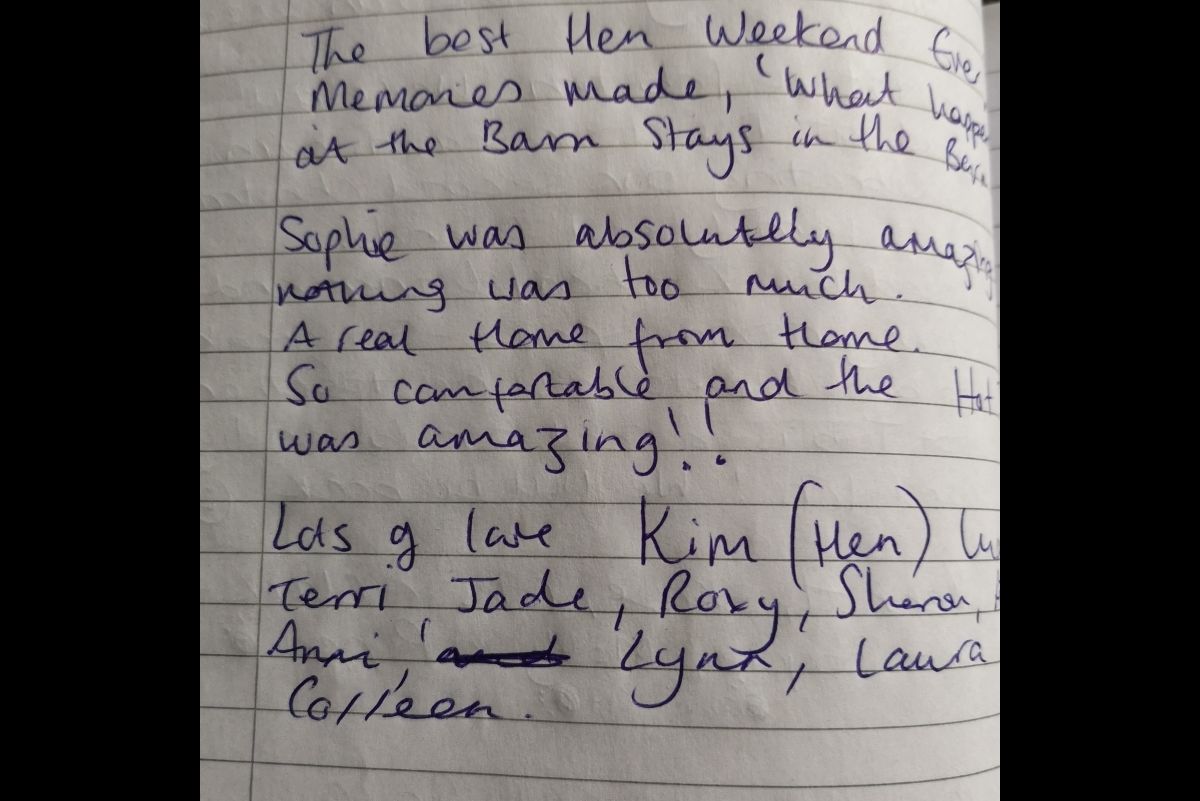 The best Hen Weekend Ever
Memories made, 'What happe
at the Barn Stays in the Barn
Sophie was absolutelly amazing
nothing was too much.
A real Home from Home.
So comfortable and the Hot
was amazing!!
Lots of love Kim (Hen)
Terri Jade, Roxy, Sharon,
Anni, Lynn, Laura
Colleen.